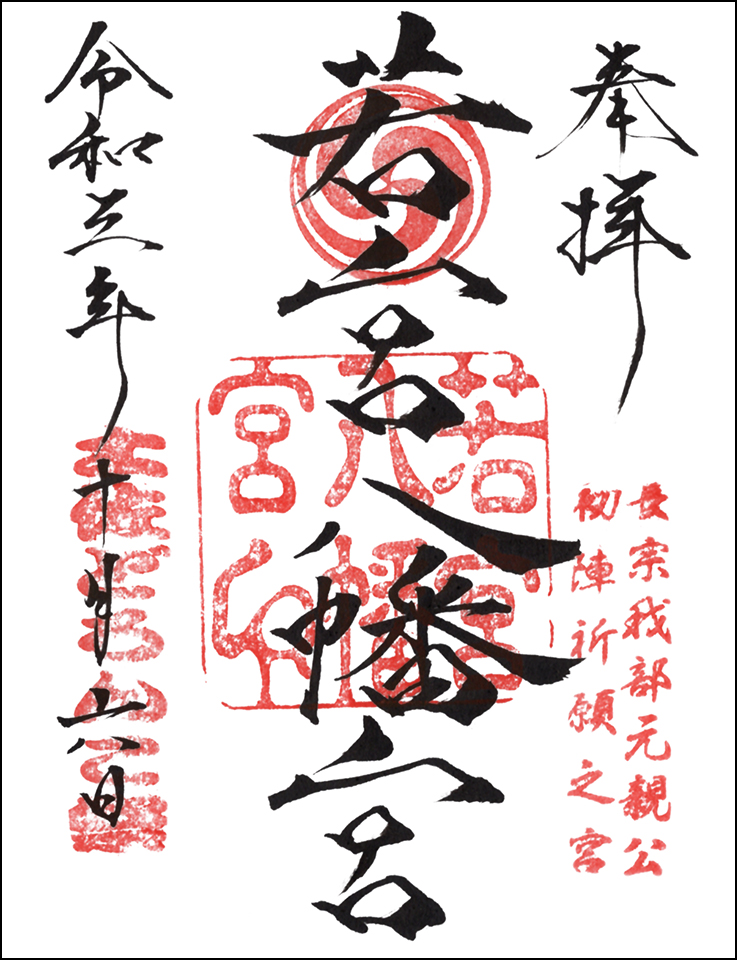 奉拝
長宗我部元親公
初陣祈願之宮
若宮八幡宮
若宮八幡宮印
令和三年十月六日